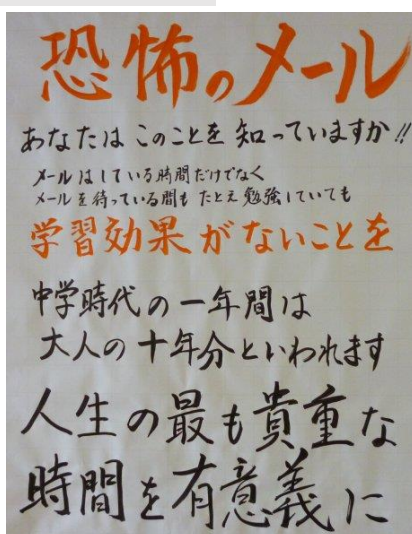 恐怖のメール
あなたはこのことを知っていますか!!
メールはしている時間だけでなく
メールを待っている間もたとえ勉強していても
学習効果がないことを
中学時代の一年間は
大人の十年分といわれます
人生の最も貴重な
時間を有意義に